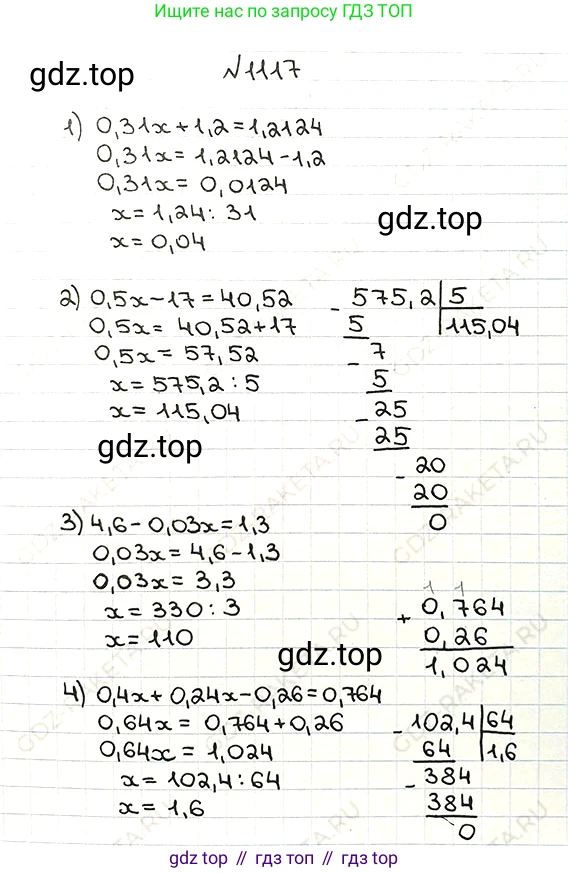 Ищите нас по запросу ГДЗ ТОП
gdz.top
№1117
1) 0,31x + 1,2 = 1,2124
0,31x = 1,2124 - 1,2
0,31x = 0,0124
x = 1,24 : 31
x = 0,04
gdz.top
2) 0,5x - 17 = 40,52
0,5x = 40,52 + 17
0,5x = 57,52
x = 575,2 : 5
x = 115,04
- 575,2 | 5
5
115,04
- 7
5
- 25
25
- 20
20
0
gdz.top
3) 4,6 - 0,03x = 1,3
0,03x = 4,6 - 1,3
0,03x = 3,3
x = 330 : 3
x = 110
1 1
+ 0,764
0,26
1,024
gdz.top
4) 0,4x + 0,24x - 0,26 = 0,764
0,64x = 0,764 + 0,26
0,64x = 1,024
x = 102,4 : 64
x = 1,6
- 102,4 | 64
64
1,6
- 384
384
0
gdz.top // гдз топ // гдз.top